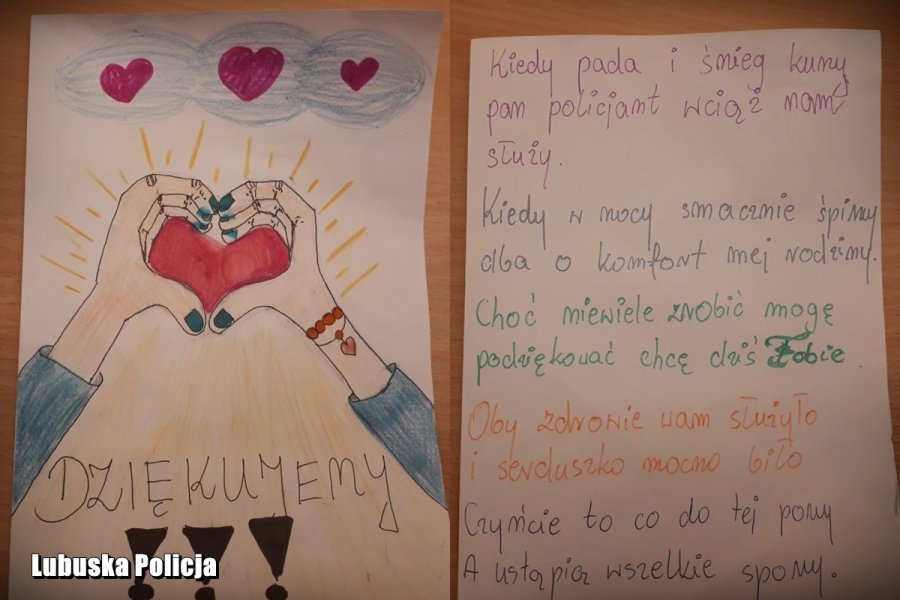 DZIĘKUJEMY
!!!
Lubuska Policja
Kiedy pada i śnieg kurzy
pan policjant wciąż nam
służy.
Kiedy w nocy smacznie śpimy
dba o komfort mej rodziny.
Choć niewiele zrobić mogę
podziękować chcę dziś Tobie.
Oby zdrowie wam służyło
i serduszko mocno biło
Czyńcie to co do tej pory
A ustąpią wszelkie spory.